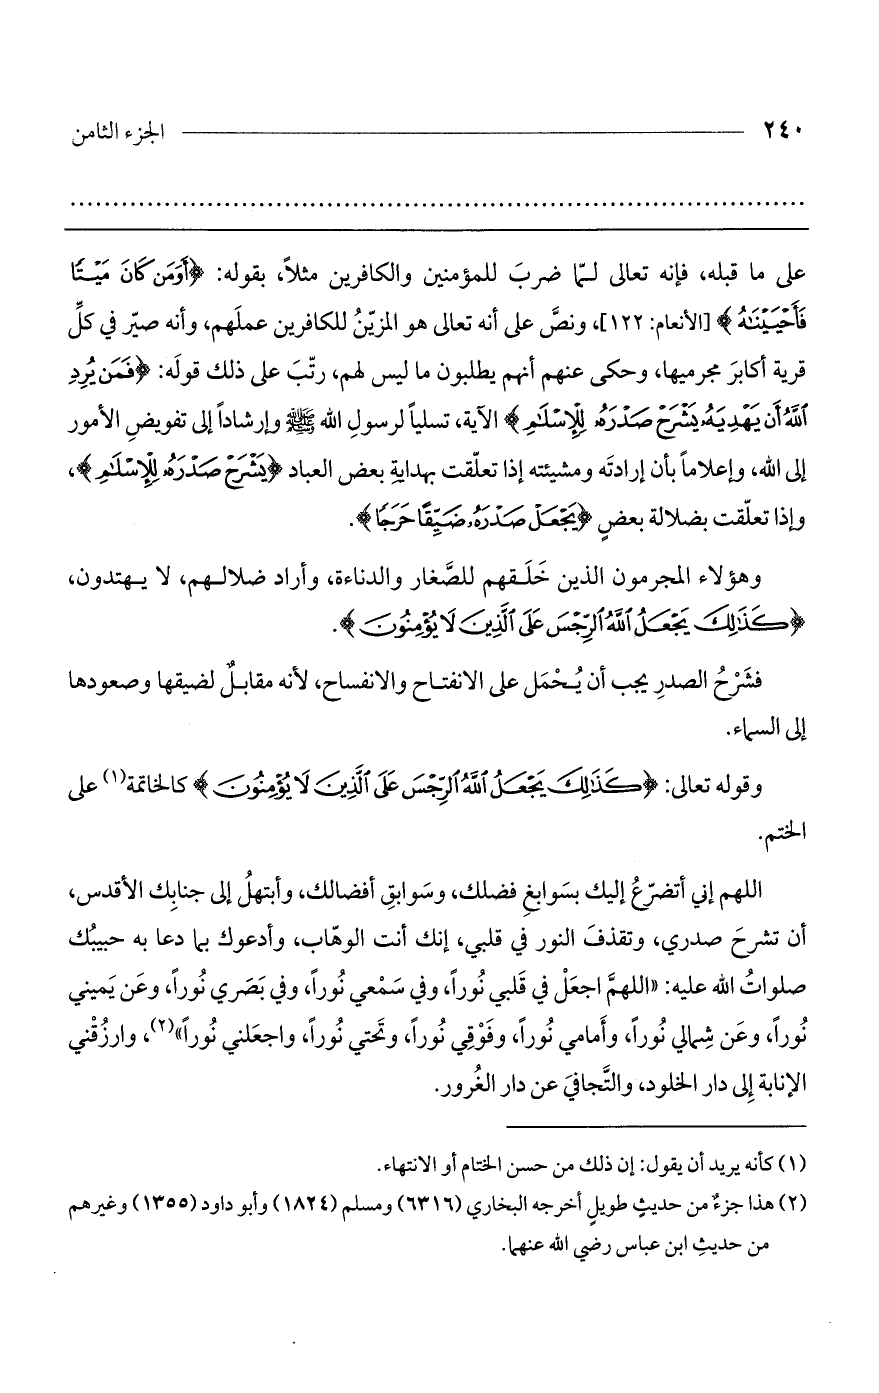 ٢٤٠ الجزء الثامن
على ما قبله، فإنه تعالى لـمّا ضربَ للمؤمنين والكافرين مثلاً، بقوله: ﴿أَوَمَن كَانَ مَيْتًا
فَأَحْيَيْنَٰهُ﴾ [الأنعام: ١٢٢]، ونصَّ على أنه تعالى هو المزيّنُ للكافرين عملَهم، وأنه صيّر في كلِّ
قرية أكابرَ مجرميها، وحكى عنهم أنهم يطلبون ما ليس لهم، رتّبَ على ذلك قولَه: ﴿فَمَن يُرِدِ
ٱللَّهُ أَن يَهْدِيَهُۥ يَشْرَحْ صَدْرَهُۥ لِلْإِسْلَٰمِ﴾ الآية، تسلياً لرسولِ الله ﷺ وإرشاداً إلى تفويضِ الأمور
إلى الله، وإعلاماً بأن إرادتَه ومشيئته إذا تعلّقت بهدايةِ بعض العباد ﴿يَشْرَحْ صَدْرَهُۥ لِلْإِسْلَٰمِ﴾،
وإذا تعلّقت بضلالة بعضٍ ﴿يَجْعَلْ صَدْرَهُۥ ضَيِّقًا حَرَجًا﴾.
وهؤلاء المجرمون الذين خَلَـقهم للصَّغار والدناءة، وأراد ضلالـهم، لا يـهتدون،
﴿كَذَٰلِكَ يَجْعَلُ ٱللَّهُ ٱلرِّجْسَ عَلَى ٱلَّذِينَ لَا يُؤْمِنُونَ﴾.
فشَرْحُ الصدرِ يجب أن يُـحْمَل على الانفتـاح والانفساح، لأنه مقابـلٌ لضيقها وصعودها
إلى السماء.
وقوله تعالى: ﴿كَذَٰلِكَ يَجْعَلُ ٱللَّهُ ٱلرِّجْسَ عَلَى ٱلَّذِينَ لَا يُؤْمِنُونَ﴾ كالخاتمة(١) على
الختم.
اللهم إني أتضرّعُ إليك بسَوابغِ فضلك، وسَوابقِ أفضالك، وأبتهلُ إلى جنابِك الأقدس،
أن تشرحَ صدري، وتقذفَ النور في قلبي، إنك أنت الوهّاب، وأدعوك بما دعا به حبيبُك
صلواتُ الله عليه: «اللهمَّ اجعَلْ في قَلبي نُوراً، وفي سَمْعي نُوراً، وفي بَصَري نُوراً، وعَن يَميني
نُوراً، وعَن شِمالي نُوراً، وأَمامي نُوراً، وفَوْقِي نُوراً، وتَحْتي نُوراً، واجعَلني نُوراً»(٢)، وارزُقْني
الإنابة إلى دار الخلود، والتَّجافيَ عن دار الغُرور.
(١) كأنه يريد أن يقول: إن ذلك من حسن الختام أو الانتهاء.
(٢) هذا جزءٌ من حديثٍ طويلٍ أخرجه البخاري (٦٣١٦) ومسلم (١٨٢٤) وأبو داود (١٣٥٥) وغيرهم
من حديثِ ابن عباس رضي الله عنهما.